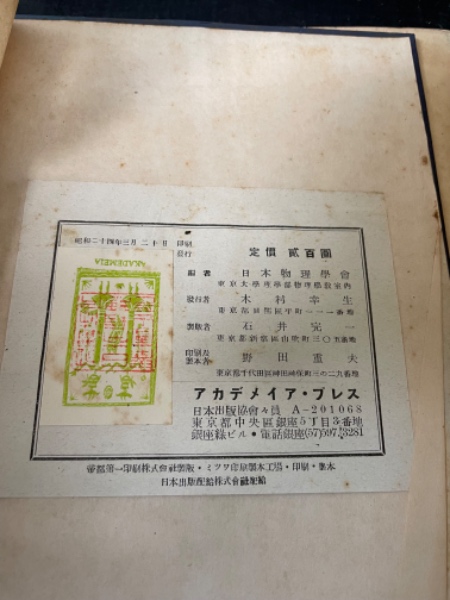 昭和二十四年三月二十日 印刷
發行
定價 貳百圓
編者 日本物理學會
東京大學理學部物理學教室內
發行者 木村幸生
製版者 石井完一
印刷及
製本者 野田重夫
東京都千代田區神田神保町三の二九番地
アカデメイア・プレス
日本出版協會々員 A-201068
東京都中央區銀座5丁目3番地
銀座綠ビル・電話銀座(57)597,3281
帝都第一印刷株式會社製版・ミツワ印刷製本工場・印刷・製本
日本出版配給株式會社配給
AKADEMEIA